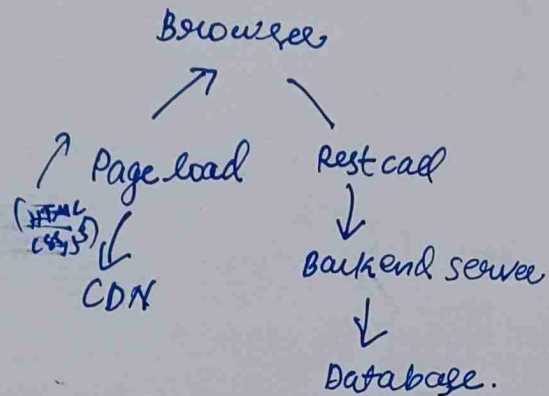 Browser
Page load
Rest call
(HTML
CSS, JS)
Backend server
CDN
Database.